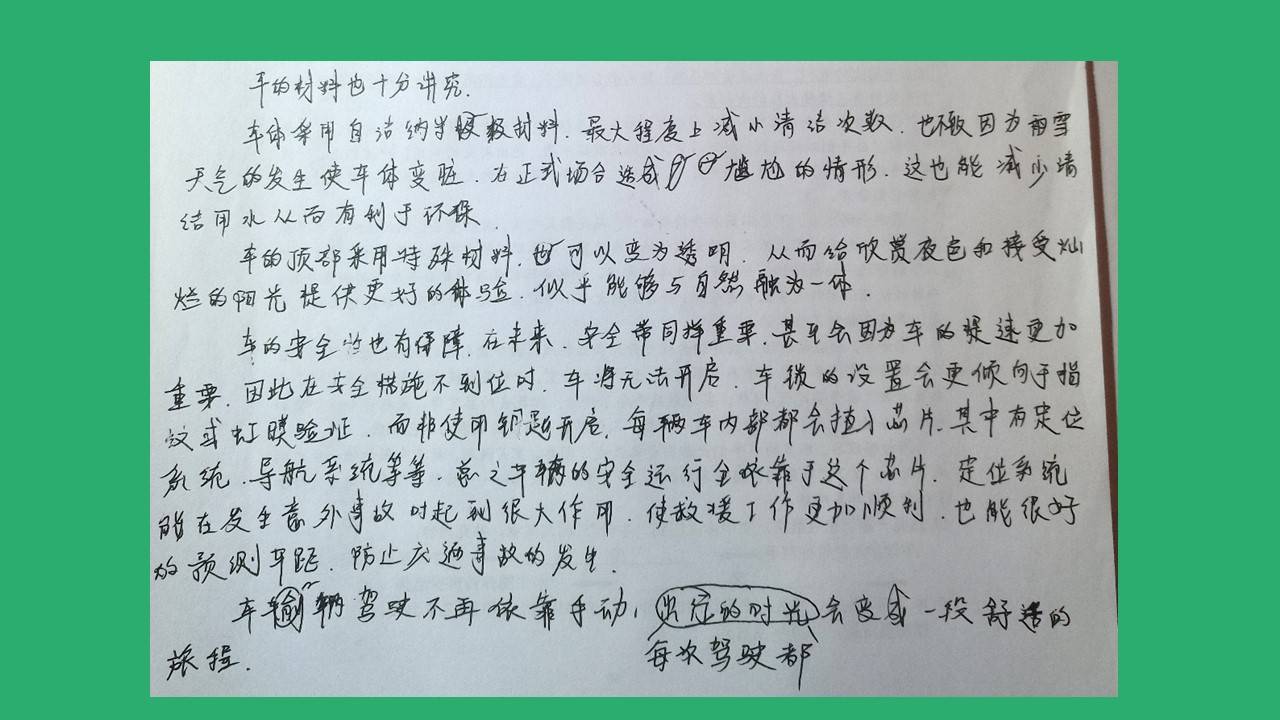 车的材料也十分讲究.
车体采用自洁纳米级材料.最大程度上减小清洁次数.也不会因为雨雪
天气的发生使车体变脏.在正式场合造成尴尬的情形.这也能减少清
洁用水从而有利于环保.
车的顶部采用特殊材料.可以变为透明.从而给欣赏夜色和接受灿
烂的阳光提供更好的体验.似乎能够与自然融为一体.
车的安全性也有保障.在未来.安全带同样重要.甚至会因为车的提速更加
重要.因此在安全措施不到位时.车将无法开启.车锁的设置会更倾向于指
纹或虹膜验证.而非使用钥匙开启.每辆车内部都会植入芯片.其中有定位
系统.导航系统等等.总之车辆的安全运行全依靠于这个芯片.定位系统
能在发生意外事故时起到很大作用.使救援工作更加顺利.也能很好
的预测车距.防止交通事故的发生.
车辆驾驶不再依靠手动,出行的时光会变成一段舒适的
每次驾驶都
旅程.